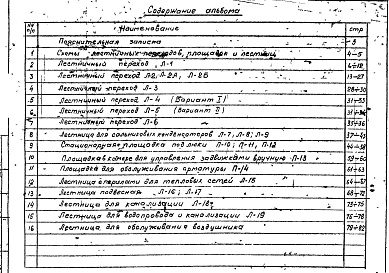 Содержание альбома
№№ п/п Наименование стр
Пояснительная записка 3
1 Схемы лестничных переходов, площадок и лестниц 4-5
2 Лестничный переход Л-1
3 Лестничный переход Л-2, Л-2А, Л-2Б 13-27
4 Лестничный переход Л-3 28-30
5 Лестничный переход Л-4 (Вариант I) 31-33
6 Лестничный переход Л-5 (вариант II)
7 Лестничный переход Л-6 35-36
8 Лестница для сальниковых конденсаторов Л-7, Л-8, Л-9 37-43
9 Стационарная площадка под люки П-10; П-11, П-12
10 Площадка в камере для управления задвижками вручную П-13 59-60
11 Площадка для обслуживания арматуры П-14 61-63
12 Лестница стремянка для тепловых сетей Л-15
13 Лестница подвесная Л-16; Л-17 68-72
14 Лестница для канализации Л-18 73-75
15 Лестница для водопровода и канализации Л-19 76-78
16 Лестница для обслуживания воздушника 79-82